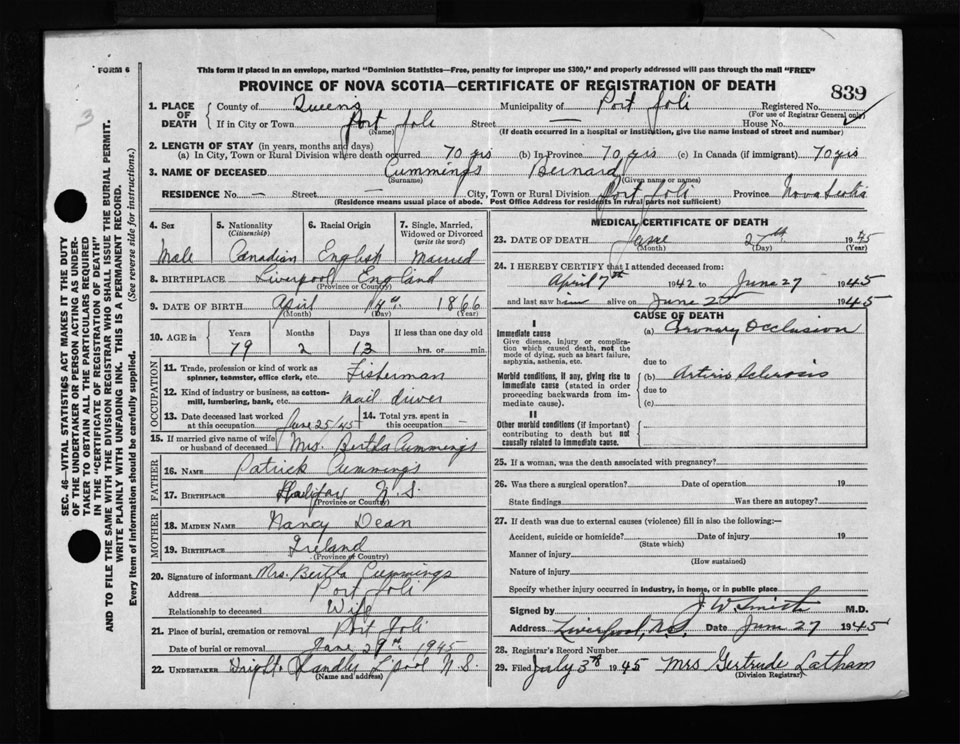 FORM 6
This form if placed in an envelope, marked "Dominion Statistics—Free, penalty for improper use $300," and properly addressed will pass through the mail "FREE"
PROVINCE OF NOVA SCOTIA—CERTIFICATE OF REGISTRATION OF DEATH
839
3
SEC. 46—VITAL STATISTICS ACT MAKES IT THE DUTY
OF THE UNDERTAKER OR PERSON ACTING AS UNDER-
TAKER TO OBTAIN ALL THE PARTICULARS REQUIRED
IN THE "CERTIFICATE OF REGISTRATION OF DEATH"
AND TO FILE THE SAME WITH THE DIVISION REGISTRAR WHO SHALL ISSUE THE BURIAL PERMIT.
WRITE PLAINLY WITH UNFADING INK. THIS IS A PERMANENT RECORD.
Every item of information should be carefully supplied. (See reverse side for instructions.)
1. PLACE OF DEATH
County of Queens Municipality of Port Joli Registered No.
(For use of Registrar General only)
If in City or Town Port Joli Street — House No.
(Name) (If death occurred in a hospital or institution, give the name instead of street and number)
2. LENGTH OF STAY (in years, months and days)
(a) In City, Town or Rural Division where death occurred 70 yrs (b) In Province 70 yrs (c) In Canada (if immigrant) 70 yrs
3. NAME OF DECEASED Cummings Bernard
(Surname) (Given name or names)
RESIDENCE No. — Street — City, Town or Rural Division Port Joli Province Nova Scotia
(Residence means usual place of abode. Post Office Address for residents in rural parts not sufficient)
4. Sex 5. Nationality (Citizenship) 6. Racial Origin 7. Single, Married, Widowed or Divorced (write the word)
Male Canadian English Married
8. BIRTHPLACE Liverpool England
(Province or Country)
9. DATE OF BIRTH April 14th 1866
(Month) (Day) (Year)
10. AGE in Years Months Days If less than one day old
79 2 13 hrs. or min.
OCCUPATION
11. Trade, profession or kind of work as spinner, teamster, office clerk, etc. Fisherman
12. Kind of industry or business, as cotton-mill, lumbering, bank, etc. mail driver
13. Date deceased last worked at this occupation June 25/45 14. Total yrs. spent in this occupation —
15. If married give name of wife or husband of deceased Mrs. Bertha Cummings
FATHER
16. NAME Patrick Cummings
17. BIRTHPLACE Halifax N.S.
(Province or Country)
MOTHER
18. MAIDEN NAME Nancy Dean
19. BIRTHPLACE Ireland
(Province or Country)
20. Signature of informant Mrs. Bertha Cummings
Address Port Joli
Relationship to deceased Wife
21. Place of burial, cremation or removal Port Joli
Date of burial or removal June 29th 1945
22. UNDERTAKER Wright L'pool N.S.
(Name and address)
MEDICAL CERTIFICATE OF DEATH
23. DATE OF DEATH June 1945
(Month) (Day) (Year)
24. I HEREBY CERTIFY that I attended deceased from:
April 7th 1942 to June 27 1945
and last saw him alive on June 1945
CAUSE OF DEATH
I
Immediate cause
Give disease, injury or complication which caused death, not the mode of dying, such as heart failure, asphyxia, asthenia, etc.
(a) Coronary Occlusion
due to
Morbid conditions, if any, giving rise to immediate cause (stated in order proceeding backwards from immediate cause).
(b) Arterio Sclerosis
due to
(c)
II
Other morbid conditions (if important) contributing to death but not causally related to immediate cause.
25. If a woman, was the death associated with pregnancy?
26. Was there a surgical operation? Date of operation 19
State findings Was there an autopsy?
27. If death was due to external causes (violence) fill in also the following:—
Accident, suicide or homicide? Date of injury 19
(State which)
Manner of injury
(How sustained)
Nature of injury
Specify whether injury occurred in industry, in home, or in public place
Signed by J W Smith M.D.
Address Liverpool, N.S. Date June 27 1945
28. Registrar's Record Number
29. Filed July 3rd 1945 Mrs Gertrude Latham
(Division Registrar)